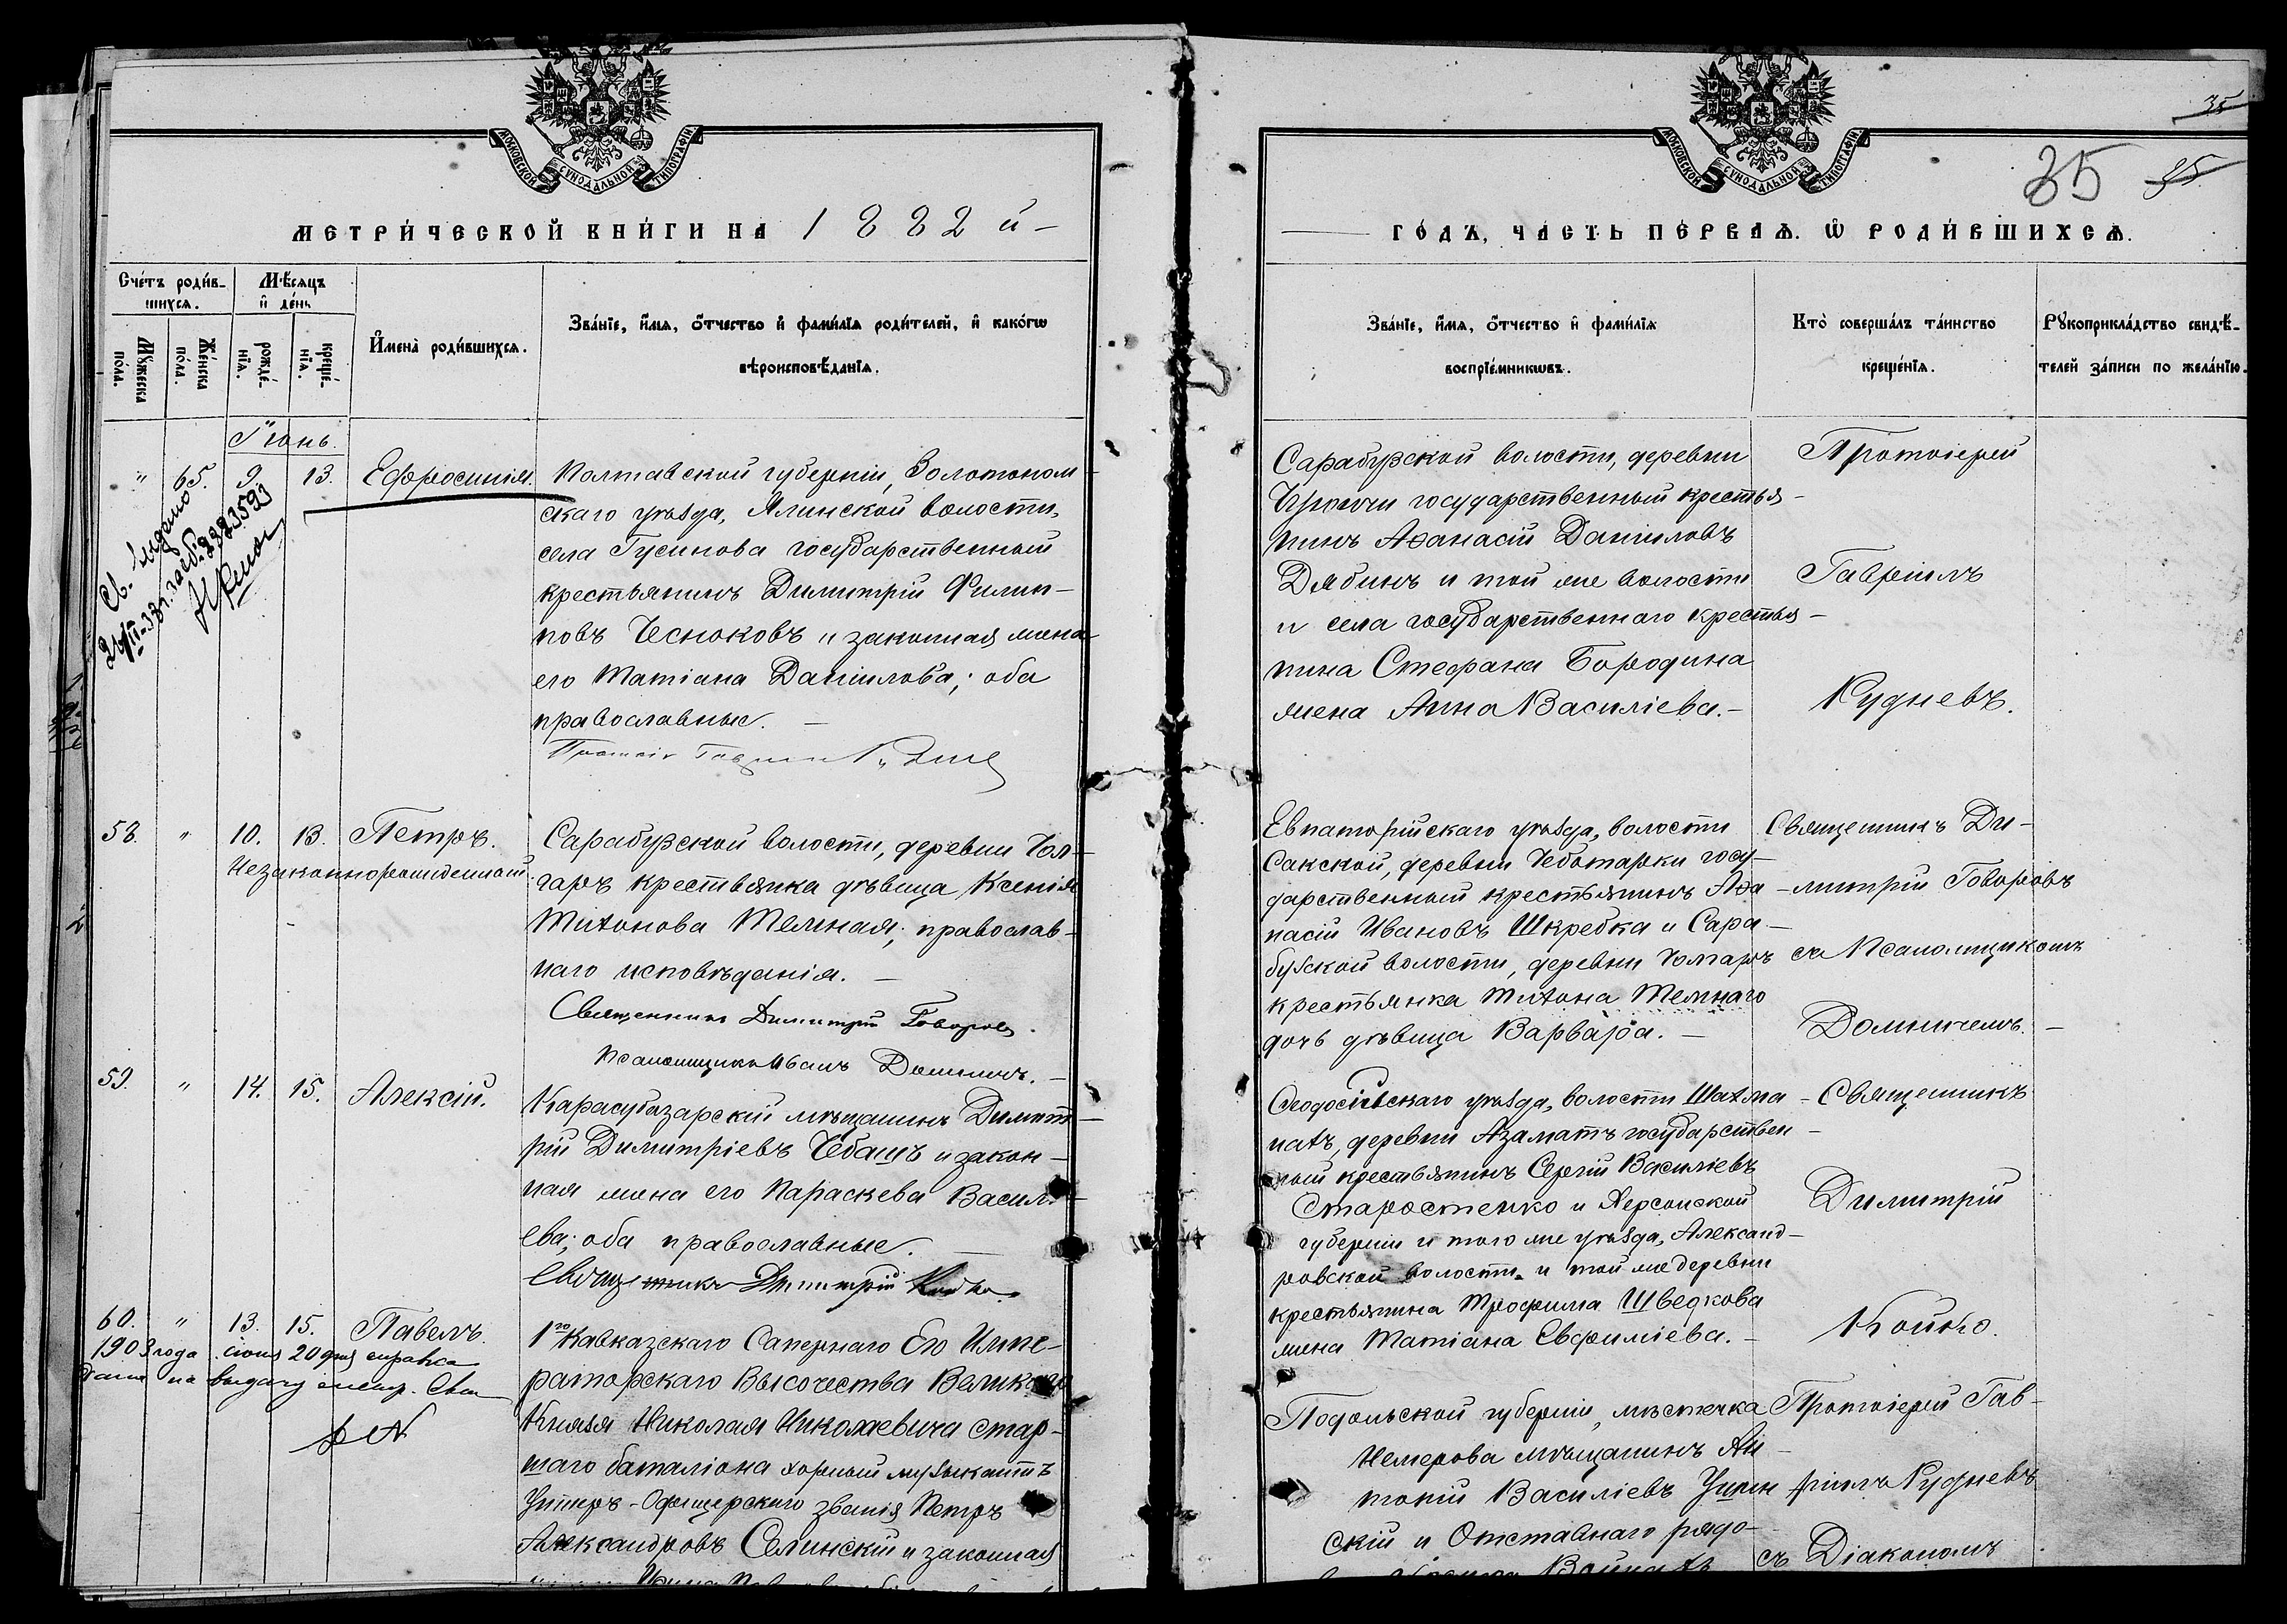 МОСКОВСКОЙ СУНОДАЛЬНОЙ ТИПОГРАФІИ
МЕТРИ́ЧЕСКОЙ КНИ́ГИ НА 1882 й –
Сче́тъ роди́в-
шихся.
Мѣ́сяцъ
и҆ де́нь
Мꙋ́жеска
по́ла.
Же́нска
по́ла.
рожде́-
нїя.
креще́-
нїя.
И҆мена̀ роди́вшихся.
Зва́нїе, и҆́мя, ѻ҆́тчество и҆ фами́лїя роди́телей, и҆ како́гѡ
вѣроисповѣ́данїя.
Іюнь.
" 65. 9. 13. Ефросинія.
Полтавской губерніи, Золотоном-
скаго уѣзда, Ялинской волости,
села Гусинова государственный
крестьянинъ Димитрій Филип-
повъ Чесноковъ и законная жена
его Татіана Даніилова; оба
православные. –
Св. выдано
58. " 10. 13. Петръ.
Незаконнорожденный.
Сарабузской волости, деревни Чол-
гаръ крестьянка дѣвица Ксенія
Тихонова Темная; православ-
наго исповѣданія. –
Священникъ Димитрій Говоровъ.
Псаломщикъ Иванъ Доминичъ. –
59. " 14. 15. Алексій.
Карасубазарскій мѣщанинъ Димит-
рій Димитріевъ Чебашъ и закон-
ная жена его Параскева Васил-
ева; оба православные. –
Священникъ Димитрій Койко.
60. " 13. 15. Павелъ.
1903 года іюня 20 дня справка
дана на выдачу метр. Свид
1го Кавказскаго Сапернаго Его Импе-
раторскаго Высочества Великаго
Князя Николая Николаевича стар-
шаго баталіона хорный музыкантъ
Унтеръ-Офицерскаго званія Петръ
Александровъ Селинскій и законная
МОСКОВСКОЙ СУНОДАЛЬНОЙ ТИПОГРАФІИ
35
35 35
ГО́ДЪ, ЧА́СТЬ ПЕ́РВАЯ. Ѡ҆ РОДИ́ВШИХСЯ.
Зва́нїе, и҆́мя, ѻ҆́тчество и҆ фами́лїя
воспрїе́мникѡвъ.
Кто̀ соверша́лъ та́инство
креще́нїя.
Рꙋкоприкла́дство свидѣ́-
телей за́писи по жела́нїю.
Сарабузской волости, деревни
государственный крестья-
нинъ Аѳанасій Даніиловъ
Дябинъ и той же волости
и села государственнаго крестья-
нина Стефана Бородина
жена Анна Василіева. –
Протоіерей
Гавріилъ
Рудневъ.
Евпаторійскаго уѣзда, волости
Сакской, деревни Чеботарки госу-
дарственный крестьянинъ Аѳа-
насій Ивановъ Шкребка и Сара-
бузской волости, деревни Чолгаръ
крестьянка Тихона Темнаго
дочь дѣвица Варвара. –
Священникъ Ди-
митрій Говоровъ
съ Псаломщикомъ
Доминичемъ. –
Ѳеодосійскаго уѣзда, волости Шахма-
натъ, деревни Азаматъ государствен-
ный крестьянинъ Сергій Василіевъ
Старостенко и Херсонской
губерніи и того же уѣзда, Александ-
ровской волости и той же деревни
крестьянина Трофима Шведкова
жена Татіана Евфиміева. –
Священникъ
Димитрій
Койко.
Подольской губерніи, мѣстечка
Немерова мѣщанинъ Ан-
тоній Василіевъ Ушин
скій и Отставнаго рядо-
Протоіерей Гав-
ріилъ Рудневъ
съ Діакономъ